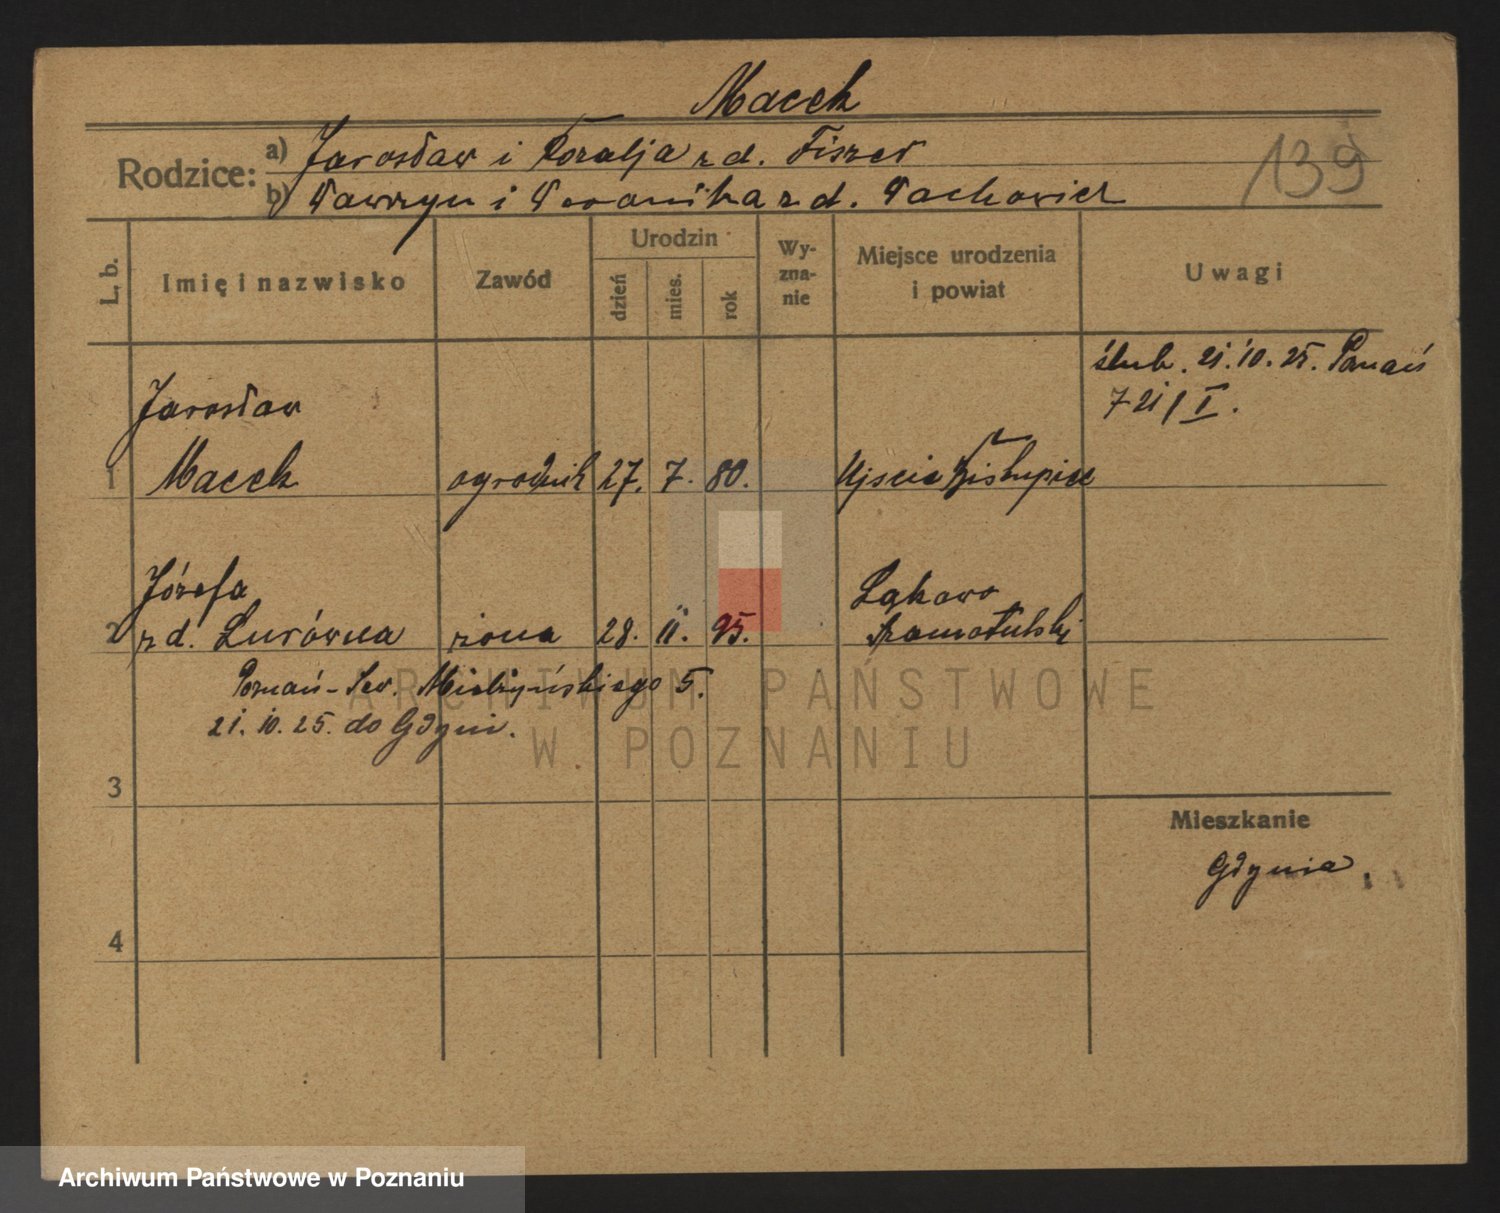 Macek
Rodzice: a) Jarosław i Rozalja z d. Fiszer
b) Wawrzyn i Weronika z d. Wachowicz
139
L. b.
Imię i nazwisko
Zawód
Urodzin
dzień
mies.
rok
Wy-
zna-
nie
Miejsce urodzenia
i powiat
Uwagi
ślub. 21.10.25. Poznań
721/I.
Jarosław
1 Macek ogrodnik 27. 7. 80. Ujście
Józefa Łąkowo
2 z d. Lurówna żona 28. 11. 95. Szamotulski
Poznań - Sew. Mielżyńskiego 5.
21. 10. 25. do Gdyni.
3
Mieszkanie
Gdynia.
4
ARCHIWUM PAŃSTWOWE
W POZNANIU
Archiwum Państwowe w Poznaniu